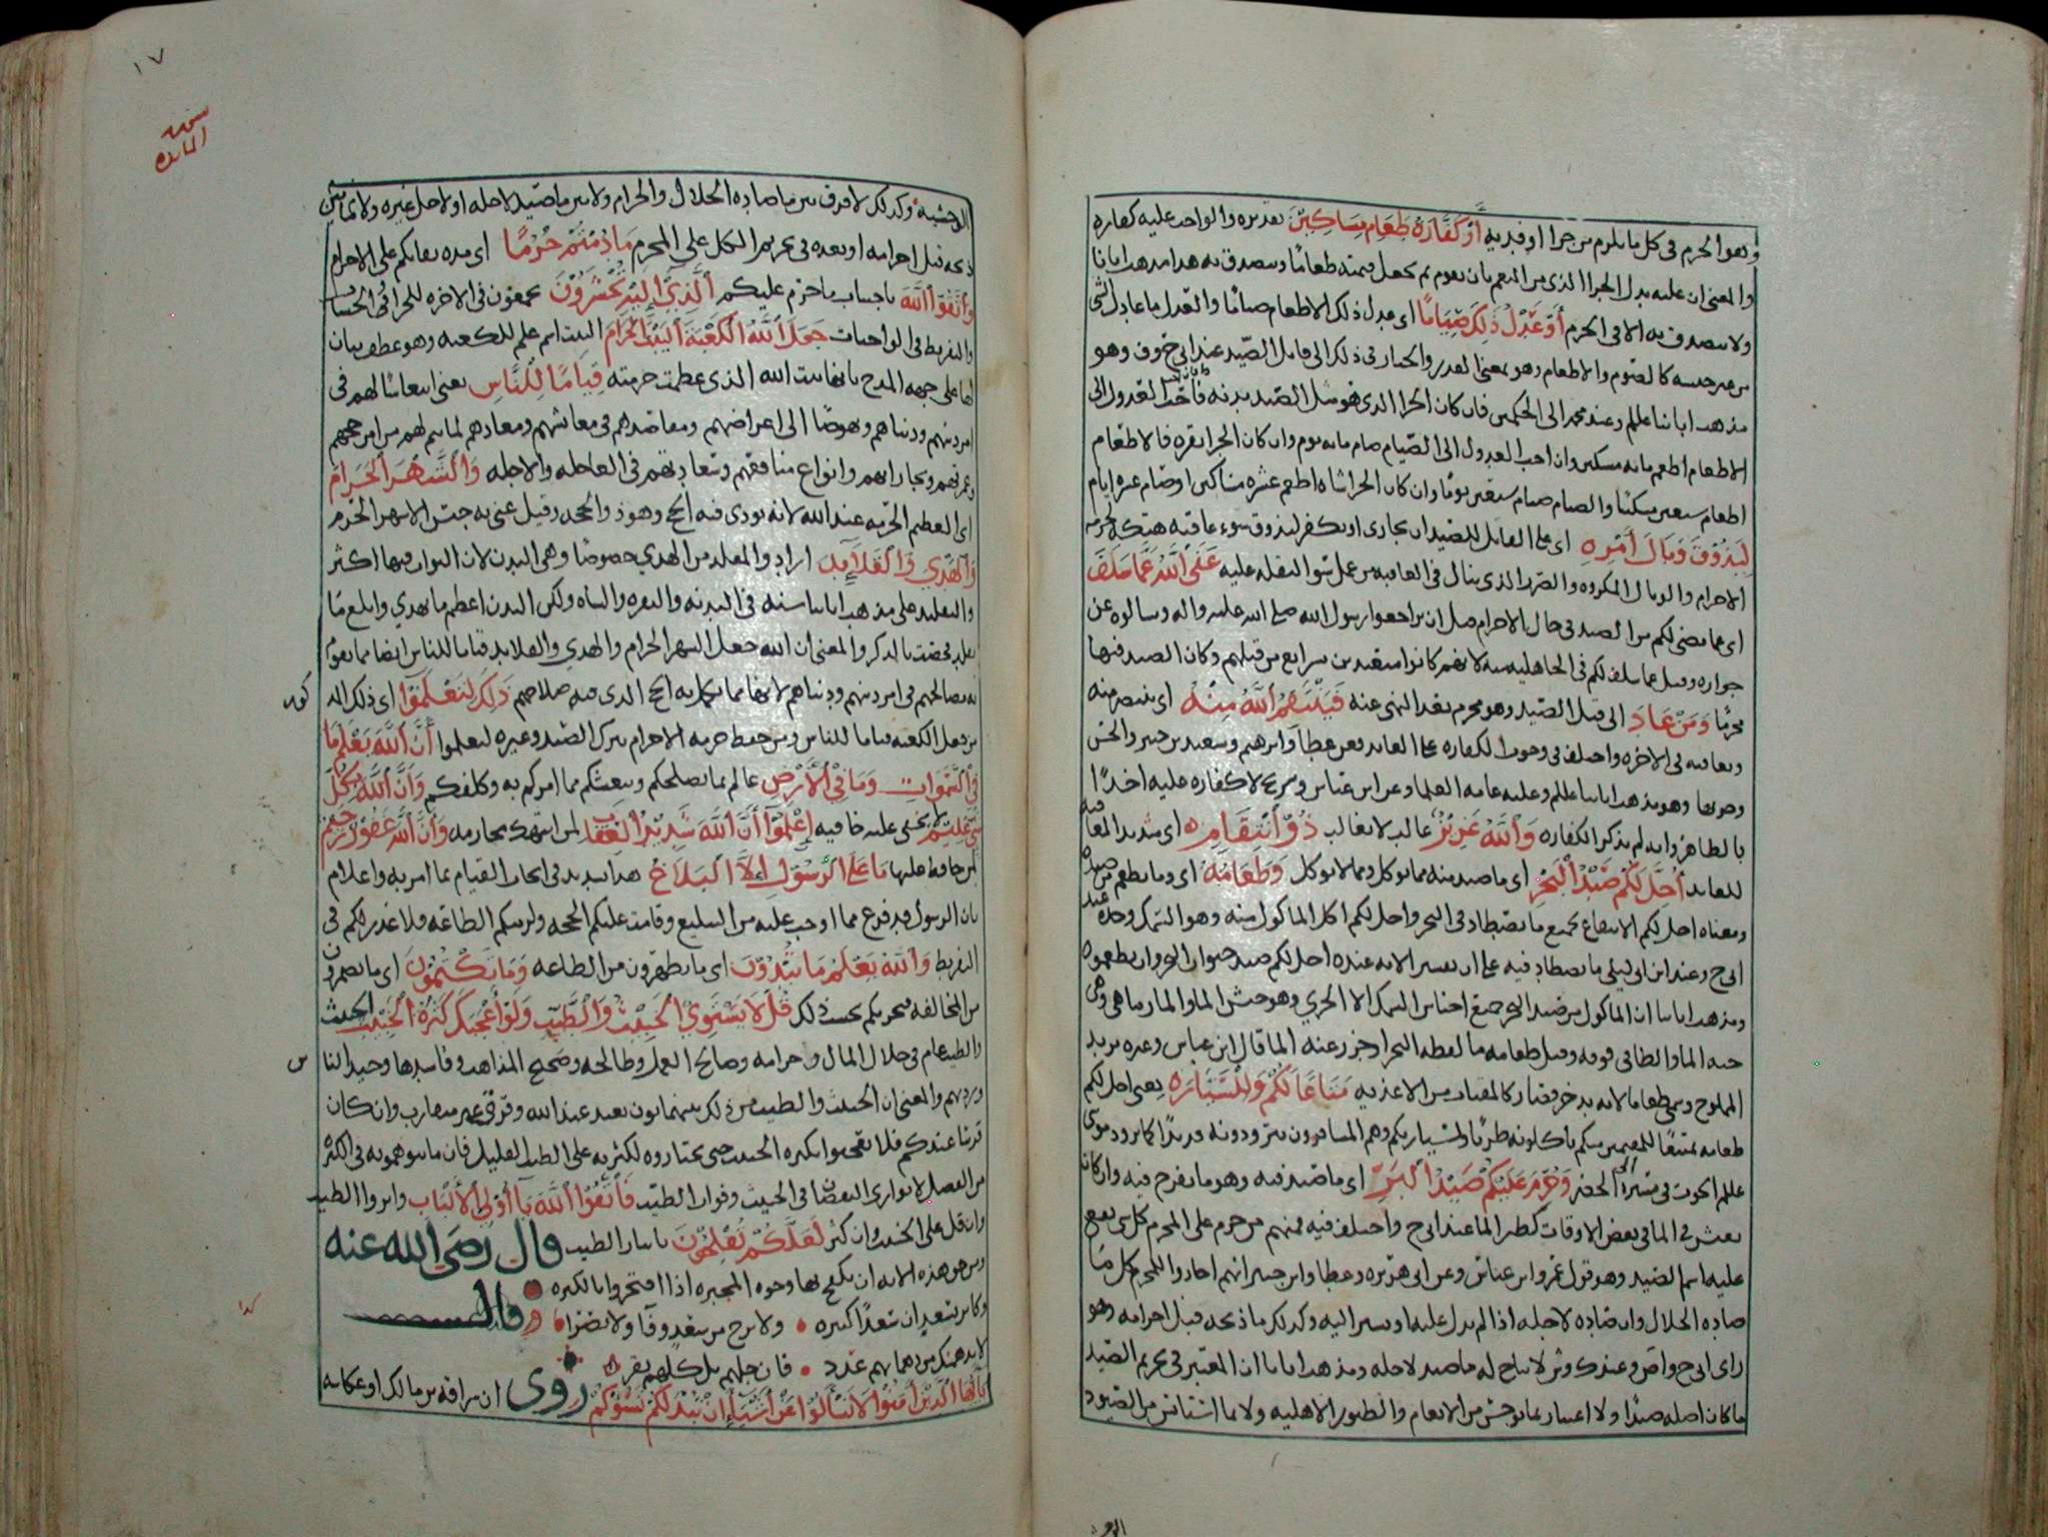 وهو الحرم في كل ما يلزم من جزا او فديه أَوْ كَفَّارَةٌ طَعَامُ مَسَاكِينَ تقديره والواجب عليه كفاره
والمعنى ان عليه بدل الجزا الذي من النعم بان يقوم ثم يجعل قيمته طعامًا ويتصدق به هذا مذهب ابائنا
ولا يتصدق به الا في الحرم أَوْ عَدْلُ ذَلِكَ صِيَامًا اي عدل ذلك الاطعام صيامًا والعدل ما عادل الشي
من غير جنسه كالصوم والاطعام وهو بمعنى القدر والخيار في ذلك الى قاتل الصيد عند ابي ح وف وهو
مذهب ابائنا عللم وعند محمد الى الحكمين فان كان الجزا الذي هو مثل الصيد بدنه فأحب العدول الى
الاطعام اطعم مايه مسكين وان احب العدول الى الصيام صام مايه يوم وان كان الجزا بقره فالاطعام
اطعام سبعين مسكينًا والصيام صيام سبعين يومًا وان كان الجزا شاه اطعم عشره مساكين او صام عشره ايام
لِيَذُوقَ وَبَالَ أَمْرِهِ اي على القاتل للصيد ان يجازى او يكفر ليذوق سوء عاقبه هتكه لحرمه
الاحرام والوبال المكروه والضرر الذي ينال في العاقبه من عمل سو لثقله عليه عَفَى اللَّهُ عَمَّا سَلَفَ
اي عما مضى لكم من الصيد في حال الاحرام قبل ان تراجعوا رسول الله صلى الله عليه واله وسالوه عن
جوازه وقيل عما سلف لكم في الجاهليه منه لانهم كانوا متعبدين بشرايع من قبلهم وكان الصيد فيها
محرمًا وَمَنْ عَادَ الى قتل الصيد وهو محرم بعد النهي عنه فَيَنْتَقِمُ اللَّهُ مِنْهُ اي ينتصر منه
ويعاقبه في الاخره واختلف في وجوب الكفاره على العايد فعن عطا وابرهيم وسعيد بن جبير والحسن
وجوبها وهو مذهب ابائنا عللم وعليه عامه العلما وعن ابن عباس وشريح لا كفاره عليه اخذًا
بالظاهر وانه لم يذكر الكفاره وَاللَّهُ عَزِيزٌ غالب لا يغالب ذُو انْتِقَامٍ اي شديد المعاقبه
للعايد أُحِلَّ لَكُمْ صَيْدُ الْبَحْرِ اي ما صيد منه مما يوكل ومما لا يوكل وَطَعَامُهُ اي وما يطعم من صيده
ومعناه احل لكم الانتفاع بجميع ما يصطاد في البحر واحل لكم اكل الماكول منه وهو السمك وحده عند
ابي ح وعند ابن ابي ليلى ما يصطاد فيه على ان تفسير الايه عنده احل لكم صيد حيوان البحر وان تطعموه
ومذهب ابائنا ان الماكول من صيد البحر جميع اجناس السمك الا الجري وهو حنش الما والمارماهي وهي
حيه الما والطافي فوقه وقيل طعامه ما لفظه البحر او جزر عنه الما قال ابن عباس وغيره يريد
المملوح وسمي طعاما لانه يدخر فصار كالمقتات من الاغذيه مَتَاعًا لَكُمْ وَلِلسَّيَّارَةِ يعني احل لكم
طعامه تمتيعًا للمقيمين منكم ياكلونه طريًا ولسيارتكم وهم المسافرون يتزودونه قديدًا كما تزود موسى
عللم الحوت في مسيره الى الخضر وَحُرِّمَ عَلَيْكُمْ صَيْدُ الْبَرِّ اي ما صيد فيه وهو ما يفرخ فيه وان كان
يعيش في الما في بعض الاوقات كطير الما عند ابي ح واختلف فيه فمنهم من حرم على المحرم كل شي يقع
عليه اسم الصيد وهو قول عمر وابن عباس وعن ابي هريره وعطا وابن جبير انهم اجازوا للمحرم اكل ما
صاده الحلال وان صاده لاجله اذا لم يدل عليه او يشر اليه وكذلك ما ذبحه قبل احرامه وهو
راي ابي ح واص وعند ك وش لا يباح له ما صيد لاجله ومذهب ابائنا ان المعتبر في تحريم الصيد
ما كان اصله صيدًا ولا اعتبار بما توحش من الانعام والطيور الاهليه ولا بما استانس من الصيود
١٧
المائده
الوحشيه وكذلك لا فرق بين ما صاده الحلال والحرام ولا بين ما صيد لاجله او لاجل غيره ولا بما بين
ذبحه قبل احرامه او بعده في تحريم الكل على المحرم مَا دُمْتُمْ حُرُمًا اي مده بقائكم على الاحرام
وَاتَّقُوا اللَّهَ باجتناب ما حرم عليكم الَّذِي إِلَيْهِ تُحْشَرُونَ تجمعون في الاخره للجزا في الحساب
والتفريط في الواجبات جَعَلَ اللَّهُ الْكَعْبَةَ الْبَيْتَ الْحَرَامَ البيت اسم علم للكعبه وهو عطف بيان
لها على جهه المدح بانها بيت الله الذي عظمت حرمته قِيَامًا لِلنَّاسِ يعني انتعاشًا لهم في
امر دينهم ودنياهم ونهوضًا الى اغراضهم ومقاصدهم في معائشهم ومعادهم لما يتم لهم من امر حجهم
وعمرتهم وتجاراتهم وانواع منافعهم وسعاداتهم في العاجله والاجله وَالشَّهْرَ الْحَرَامَ
اي العظيم الحرمه عند الله لانه يودى فيه الحج وهو ذو الحجه وقيل عني به جنس الاشهر الحرم
وَالْهَدْيَ وَالْقَلَائِدَ اراد والمقلد من الهدي خصوصًا وهي البدن لان الثواب فيها اكثر
والتقليد على مذهب ابائنا سنه في البدنه والبقره والشاه ولكن البدن اعظم ما يهدى وابلغ ما
يقلد فخصت بالذكر والمعنى ان الله جعل الشهر الحرام والهدي والقلائد قياما للناس ايضا مما يقوم
به مصالحهم في امر دينهم ودنياهم لانها مما يكمل به الحج الذي فيه صلاحهم ذَلِكَ لِتَعْلَمُوا اي ذلك الذ
من جعل الكعبه قياما للناس ومن حفظ حرمه الاحرام بترك الصيد وغيره لتعلموا أَنَّ اللَّهَ يَعْلَمُ مَا
فِي السَّمَوَاتِ وَمَا فِي الْأَرْضِ عالم بما يصلحكم وينعشكم مما امركم به وكلفكم وَأَنَّ اللَّهَ بِكُلِّ
شَيْءٍ عَلِيمٌ لا يخفى عليه خافيه اعْلَمُوا أَنَّ اللَّهَ شَدِيدُ الْعِقَابِ لمن انتهك محارمه وَأَنَّ اللَّهَ غَفُورٌ رَحِيمٌ
لمن حافظ عليها مَا عَلَى الرَّسُولِ إِلَّا الْبَلَاغُ هذا تشديد في ايجاب القيام بما امر به واعلام
بان الرسول قد فرغ مما اوجب عليه من التبليغ وقامت عليكم الحجه ولزمتكم الطاعه فلا عذر لكم في
التفريط وَاللَّهُ يَعْلَمُ مَا تُبْدُونَ اي ما تظهرون من الطاعه وَمَا تَكْتُمُونَ اي ما تضمرون
من المخالفه فيجزيكم بحسب ذلك قُلْ لَا يَسْتَوِي الْخَبِيثُ وَالطَّيِّبُ وَلَوْ أَعْجَبَكَ كَثْرَةُ الْخَبِيثِ الخبيث
والطيب عام في حلال المال وحرامه وصالح العمل وطالحه وصحيح المذاهب وفاسدها وجيد النا
ورديهم والمعنى ان الخبيث والطيب من ذلك بينهما بون بعيد عند الله وفرق غير متقارب وان كان
قريبا عندكم فلا تعجبوا بكثره الخبيث حتى تختاروه لكثرته على الطيب القليل فان ما تتوهمونه في الكثره
من الفضل لا يوازي النقصان في الخبيث وفوات الطيب فَاتَّقُوا اللَّهَ يَا أُولِي الْأَلْبَابِ واثروا الطيب
وان قل على الخبيث وان كثر لَعَلَّكُمْ تُفْلِحُونَ بايثار الطيب قال رضي الله عنه
ومن حق هذه الايه ان يكفح بها وجوه المجبره اذا افتخروا بالكثره
وكاثر بسعد ان سعدًا كثيره • ولا ترج من سعد وفآ ولا نصرا • وقال
لا يدهمنك من دهمائهم عدد • فان جلهم بل كلهم بقر
يَا أَيُّهَا الَّذِينَ آمَنُوا لَا تَسْأَلُوا عَنْ أَشْيَاءَ إِنْ تُبْدَ لَكُمْ تَسُؤْكُمْ روي ان سراقه بن مالك او عكاشه